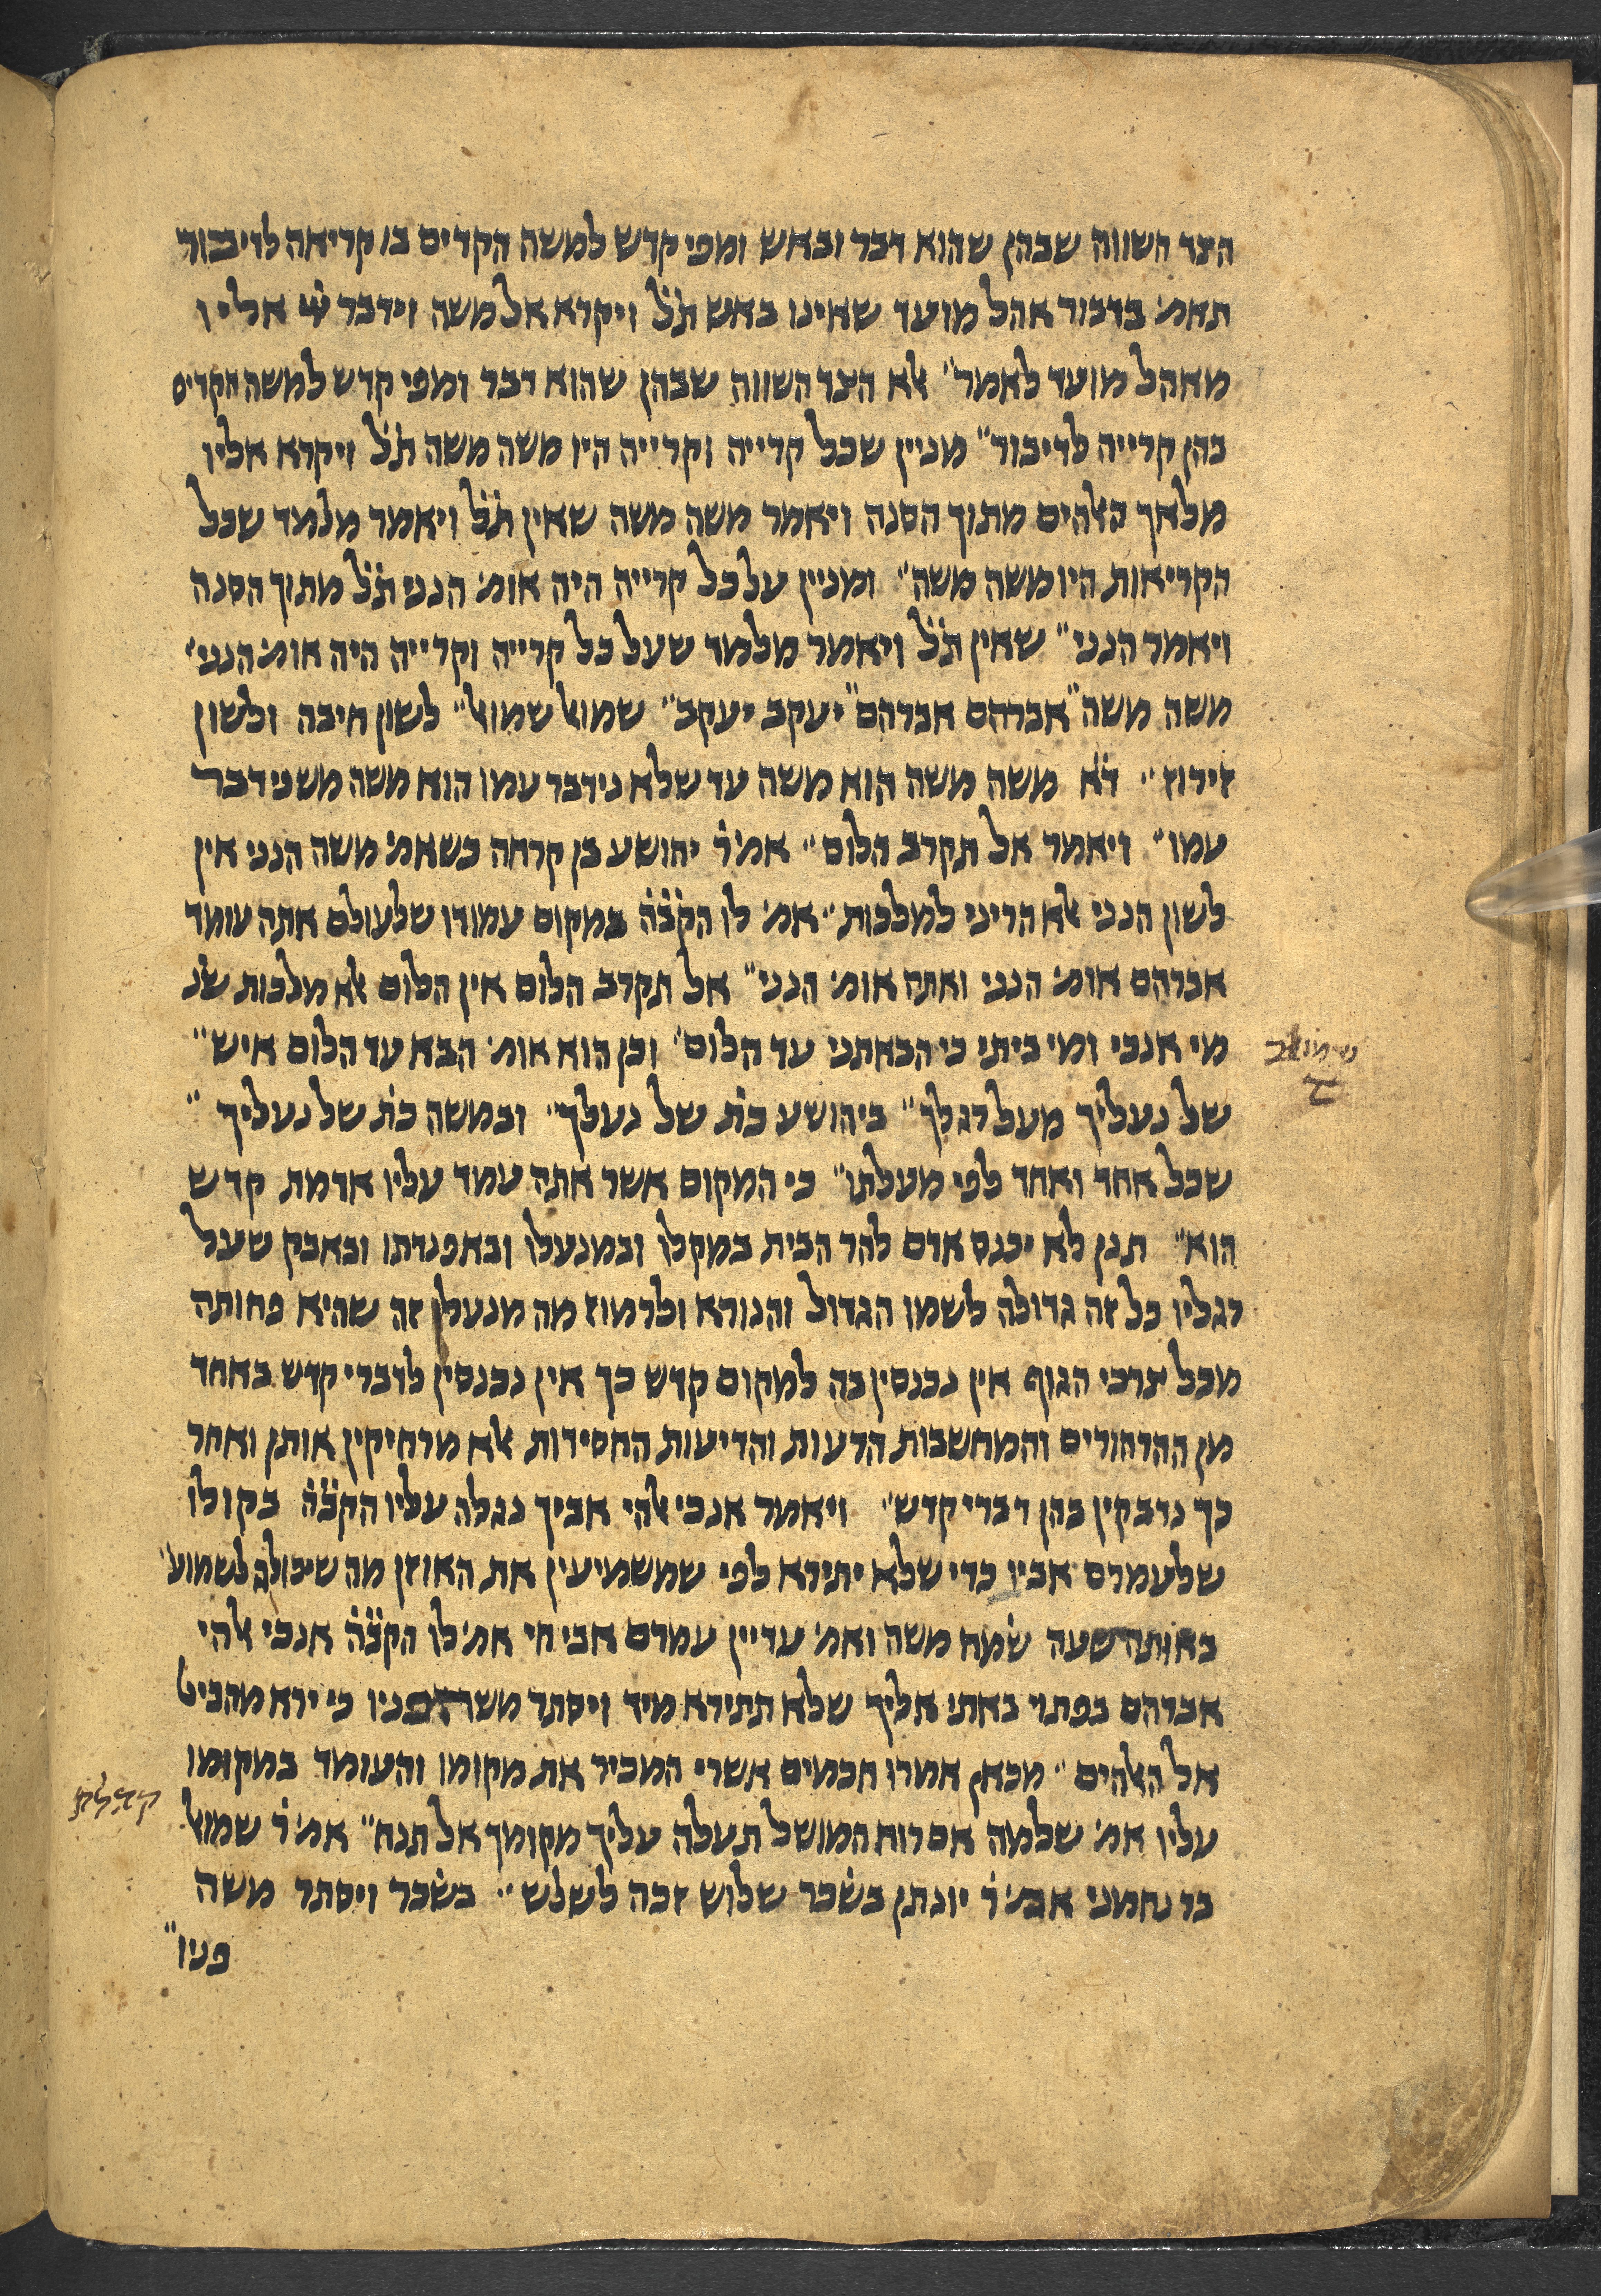 הצד השווה שבהן שהוא דבר ובאש ומפי קדש למשה הקדים בו קריאה לדיבור
תאמ׳ בדבור אהל מועד שאינו באש ת׳ל׳ ויקרא אל משה וידבר ײ׳ אליו
מאהל מועד לאמר״ אלא הצד השווה שבהן שהוא דבר ומפי קדש למשה הקדים
בהן קרייה לדיבור״ מניין שכל קרייה וקרייה היו משה משה ת׳ל׳ ויקרא אליו
מלאך האלהים מתוך הסנה ויאמר משה משה שאין ת׳ל׳ ויאמר מלמד שכל
הקריאות היו משה משה״ ומניין על כל קרייה היה אומ׳ הנני ת׳ל׳ מתוך הסנה
ויאמר הנני״ שאין ת׳ל׳ ויאמר מלמד שעל כל קרייה וקרייה היה אומ׳ הנני״
משה משה״ אברהם אברהם״ יעקב יעקב״ שמואל שמואל״ לשון חיבה ולשון
זירוז״ ד׳א׳ משה משה הוא משה עד שלא נידבר עמו הוא משה משנידבר
עמו״ ויאמר אל תקרב הלום״ אמ׳ ר׳ יהושע בן קרחה כשאמ׳ משה הנני אין
לשון הנני אלא הריני למלכות״ אמ׳ לו הק׳ב׳ה׳ במקום עמודו שלעולם אתה עומד
אברהם אומ׳ הנני ואתה אומ׳ הנני״ אל תקרב הלום אין הלום אלא מלכות שנ׳
מי אנכי ומי ביתי כי הבאתני עד הלום״ וכן הוא אומ׳ הבא עד הלום איש״
שמואל ב
ז
של נעליך מעל רגלך״ ביהושע כת׳ של נעלך״ ובמשה כת׳ של נעליך״
שכל אחד ואחד לפי מעלתו״ כי המקום אשר אתה עמד עליו אדמת קדש
הוא״ תנן לא יכנס אדם להר הבית במקלו ובמנעלו ובאפנדתו ובאבק שעל
רגליו כל זה גדולה לשמו הגדול והנורא ולרמוז מה מנעלו זה שהיא פחותה
מכל צרכי הגוף אין נכנסין בה למקום קדש כך אין נכנסין לדברי קדש באחד
מן ההרהורים והמחשבות הדעות והדיעות החסידות אלא מרחיקין אותן ואחר
כך נדבקין בהן דברי קדש״ ויאמר אנכי אלהי אביך נגלה עליו הק׳ב׳ה׳ בקולו
שלעמרם אביו כדי שלא יתירא לפי שמשמיעין את האוזן מה שיכולה לשמוע״
באותה שעה שמח משה ואמ׳ עדיין עמרם אבי חי אמ׳ לו הק׳ב׳ה׳ אנכי אלהי
אברהם בפתוי באתי אליך שלא תתירא מיד ויסתר משה פניו כי ירא מהביט
אל האלהים״ מכאן אמרו חכמים אשרי המכיר את מקומו והעומד במקומו
קהלת
עליו אמ׳ שלמה אם רוח המושל תעלה עליך מקומך אל תנח״ אמ׳ ר׳ שמואל
בר נחמני אמ׳ ר׳ יונתן בשכר שלוש זכה לשלש״ בשכר ויסתר משה
פניו״